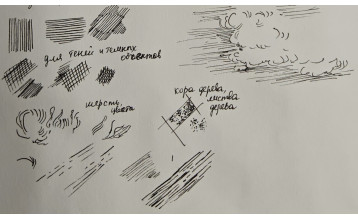 для теней и темных
объектов
шерсть,
цвета
кора дерева,
листва
дерева